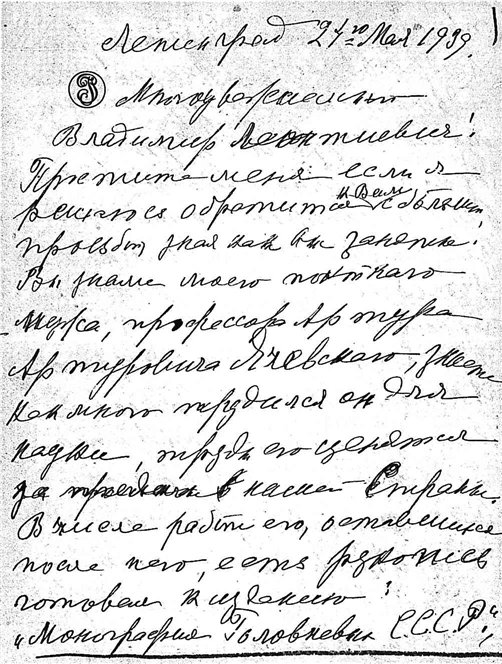 Ленинград 27го Мая 1939.
Многоуважаемый
Владимир Леонтиевич!
Простите меня если я
решаюсь обратиться к Вам с большой
просьбой зная как Вы заняты.
Вы знали моего покойного
мужа, профессора Артура
Артуровича Ячевского, знаете
как много трудился он для
науки, труды его ценятся
в нашей Страны.
В числе работ его, оставшихся
после него, есть рукопись
готовая к изданию:
"Монография Головневых С.С.С.Р."